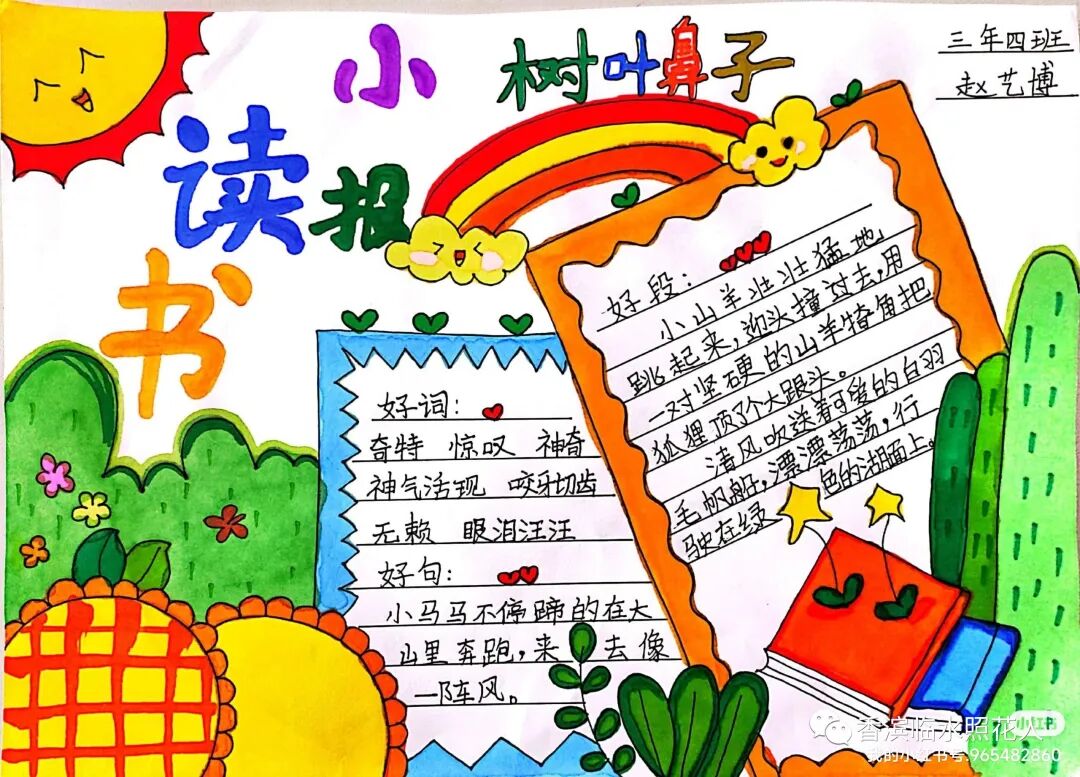 小 树叶鼻子
三年四班
赵艺博
读报
书
好词:
奇特 惊叹 神奇
神气活现 咬牙切齿
无赖 眼泪汪汪
好句:
小马马不停蹄的在大
山里奔跑,来去像
一阵风。
好段:
小山羊壮壮猛地
跳起来,迎头撞过去,用
一对坚硬的山羊犄角把
狐狸顶了个大跟头。
清风吹送着可爱的白羽
毛帆船,漂漂荡荡,行
驶在绿色的湖面上。
小红书
香滨临水照花人
我的小红书号:965482860